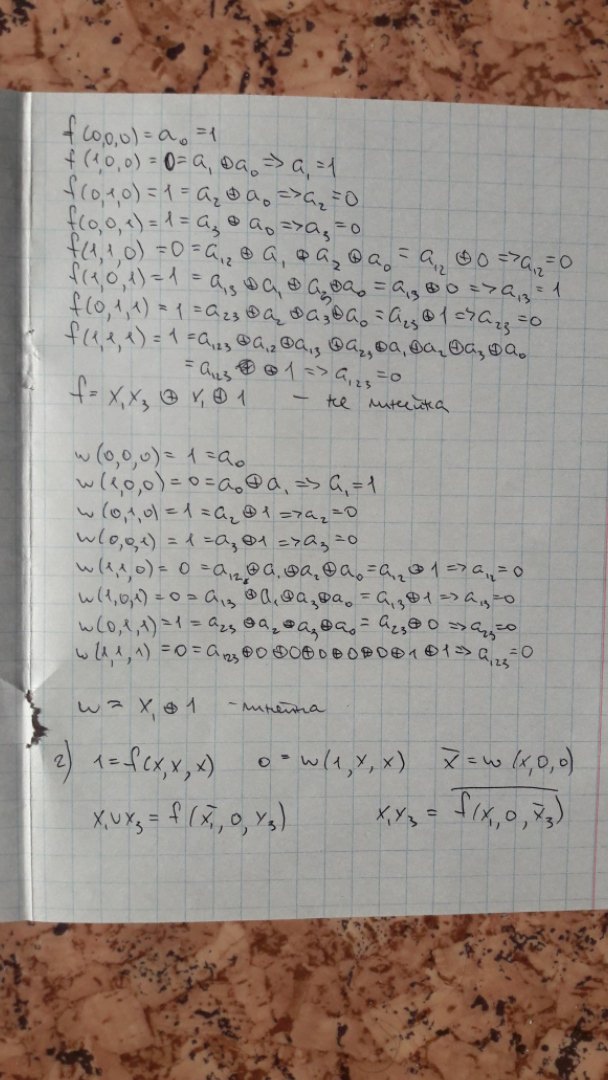 f(0,0,0) = a₀ = 1
f(1,0,0) = 0 = a₁ ⊕ a₀ => a₁ = 1
f(0,1,0) = 1 = a₂ ⊕ a₀ => a₂ = 0
f(0,0,1) = 1 = a₃ ⊕ a₀ => a₃ = 0
f(1,1,0) = 0 = a₁₂ ⊕ a₁ ⊕ a₂ ⊕ a₀ = a₁₂ ⊕ 0 => a₁₂ = 0
f(1,0,1) = 1 = a₁₃ ⊕ a₁ ⊕ a₃ ⊕ a₀ = a₁₃ ⊕ 0 => a₁₃ = 1
f(0,1,1) = 1 = a₂₃ ⊕ a₂ ⊕ a₃ ⊕ a₀ = a₂₃ ⊕ 1 => a₂₃ = 0
f(1,1,1) = 1 = a₁₂₃ ⊕ a₁₂ ⊕ a₁₃ ⊕ a₂₃ ⊕ a₁ ⊕ a₂ ⊕ a₃ ⊕ a₀
= a₁₂₃ ⊕ ⊕ 1 => a₁₂₃ = 0
f = x₁x₃ ⊕ x₁ ⊕ 1 – не линейна
w(0,0,0) = 1 = a₀
w(1,0,0) = 0 = a₀ ⊕ a₁ => a₁ = 1
w(0,1,0) = 1 = a₂ ⊕ 1 => a₂ = 0
w(0,0,1) = 1 = a₃ ⊕ 1 => a₃ = 0
w(1,1,0) = 0 = a₁₂ ⊕ a₁ ⊕ a₂ ⊕ a₀ = a₁₂ ⊕ 1 => a₁₂ = 0
w(1,0,1) = 0 = a₁₃ ⊕ a₁ ⊕ a₃ ⊕ a₀ = a₁₃ ⊕ 1 => a₁₃ = 0
w(0,1,1) = 1 = a₂₃ ⊕ a₂ ⊕ a₃ ⊕ a₀ = a₂₃ ⊕ 0 => a₂₃ = 0
w(1,1,1) = 0 = a₁₂₃ ⊕ 0 ⊕ 0 ⊕ 0 ⊕ 0 ⊕ 0 ⊕ 1 ⊕ 1 => a₁₂₃ = 0
w = x₁ ⊕ 1 – линейна
г) 1 = f(x,x,x) 0 = w(1,x,x) x̅ = w(x,0,0)
x₁∪x₃ = f(x̅₁, 0, x₃) x₁x₃ = \overline{f(x₁, 0, x̅₃)}